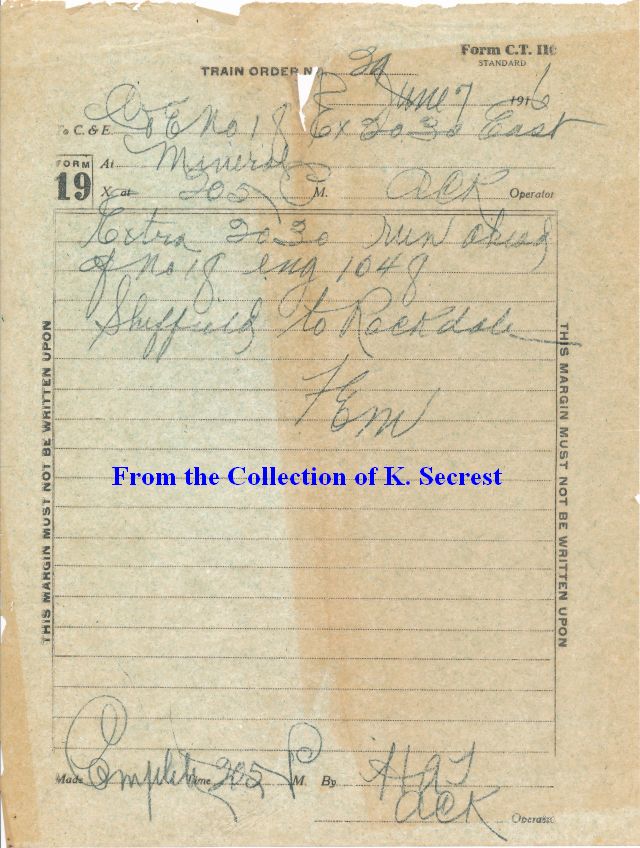 Form C.T. 110
STANDARD
TRAIN ORDER No 39
June 7 1916
To C. & E. No 18 Ex 3030 East
FORM
19
At Mineral
X at 205 P M. ACK Operator
Extra 3030 run ahead
of No 18 eng 1048
Sheffield to Rockdale
FEM
THIS MARGIN MUST NOT BE WRITTEN UPON
THIS MARGIN MUST NOT BE WRITTEN UPON
From the Collection of K. Secrest
Made Complete Time 205 P M. By
ACK Operator